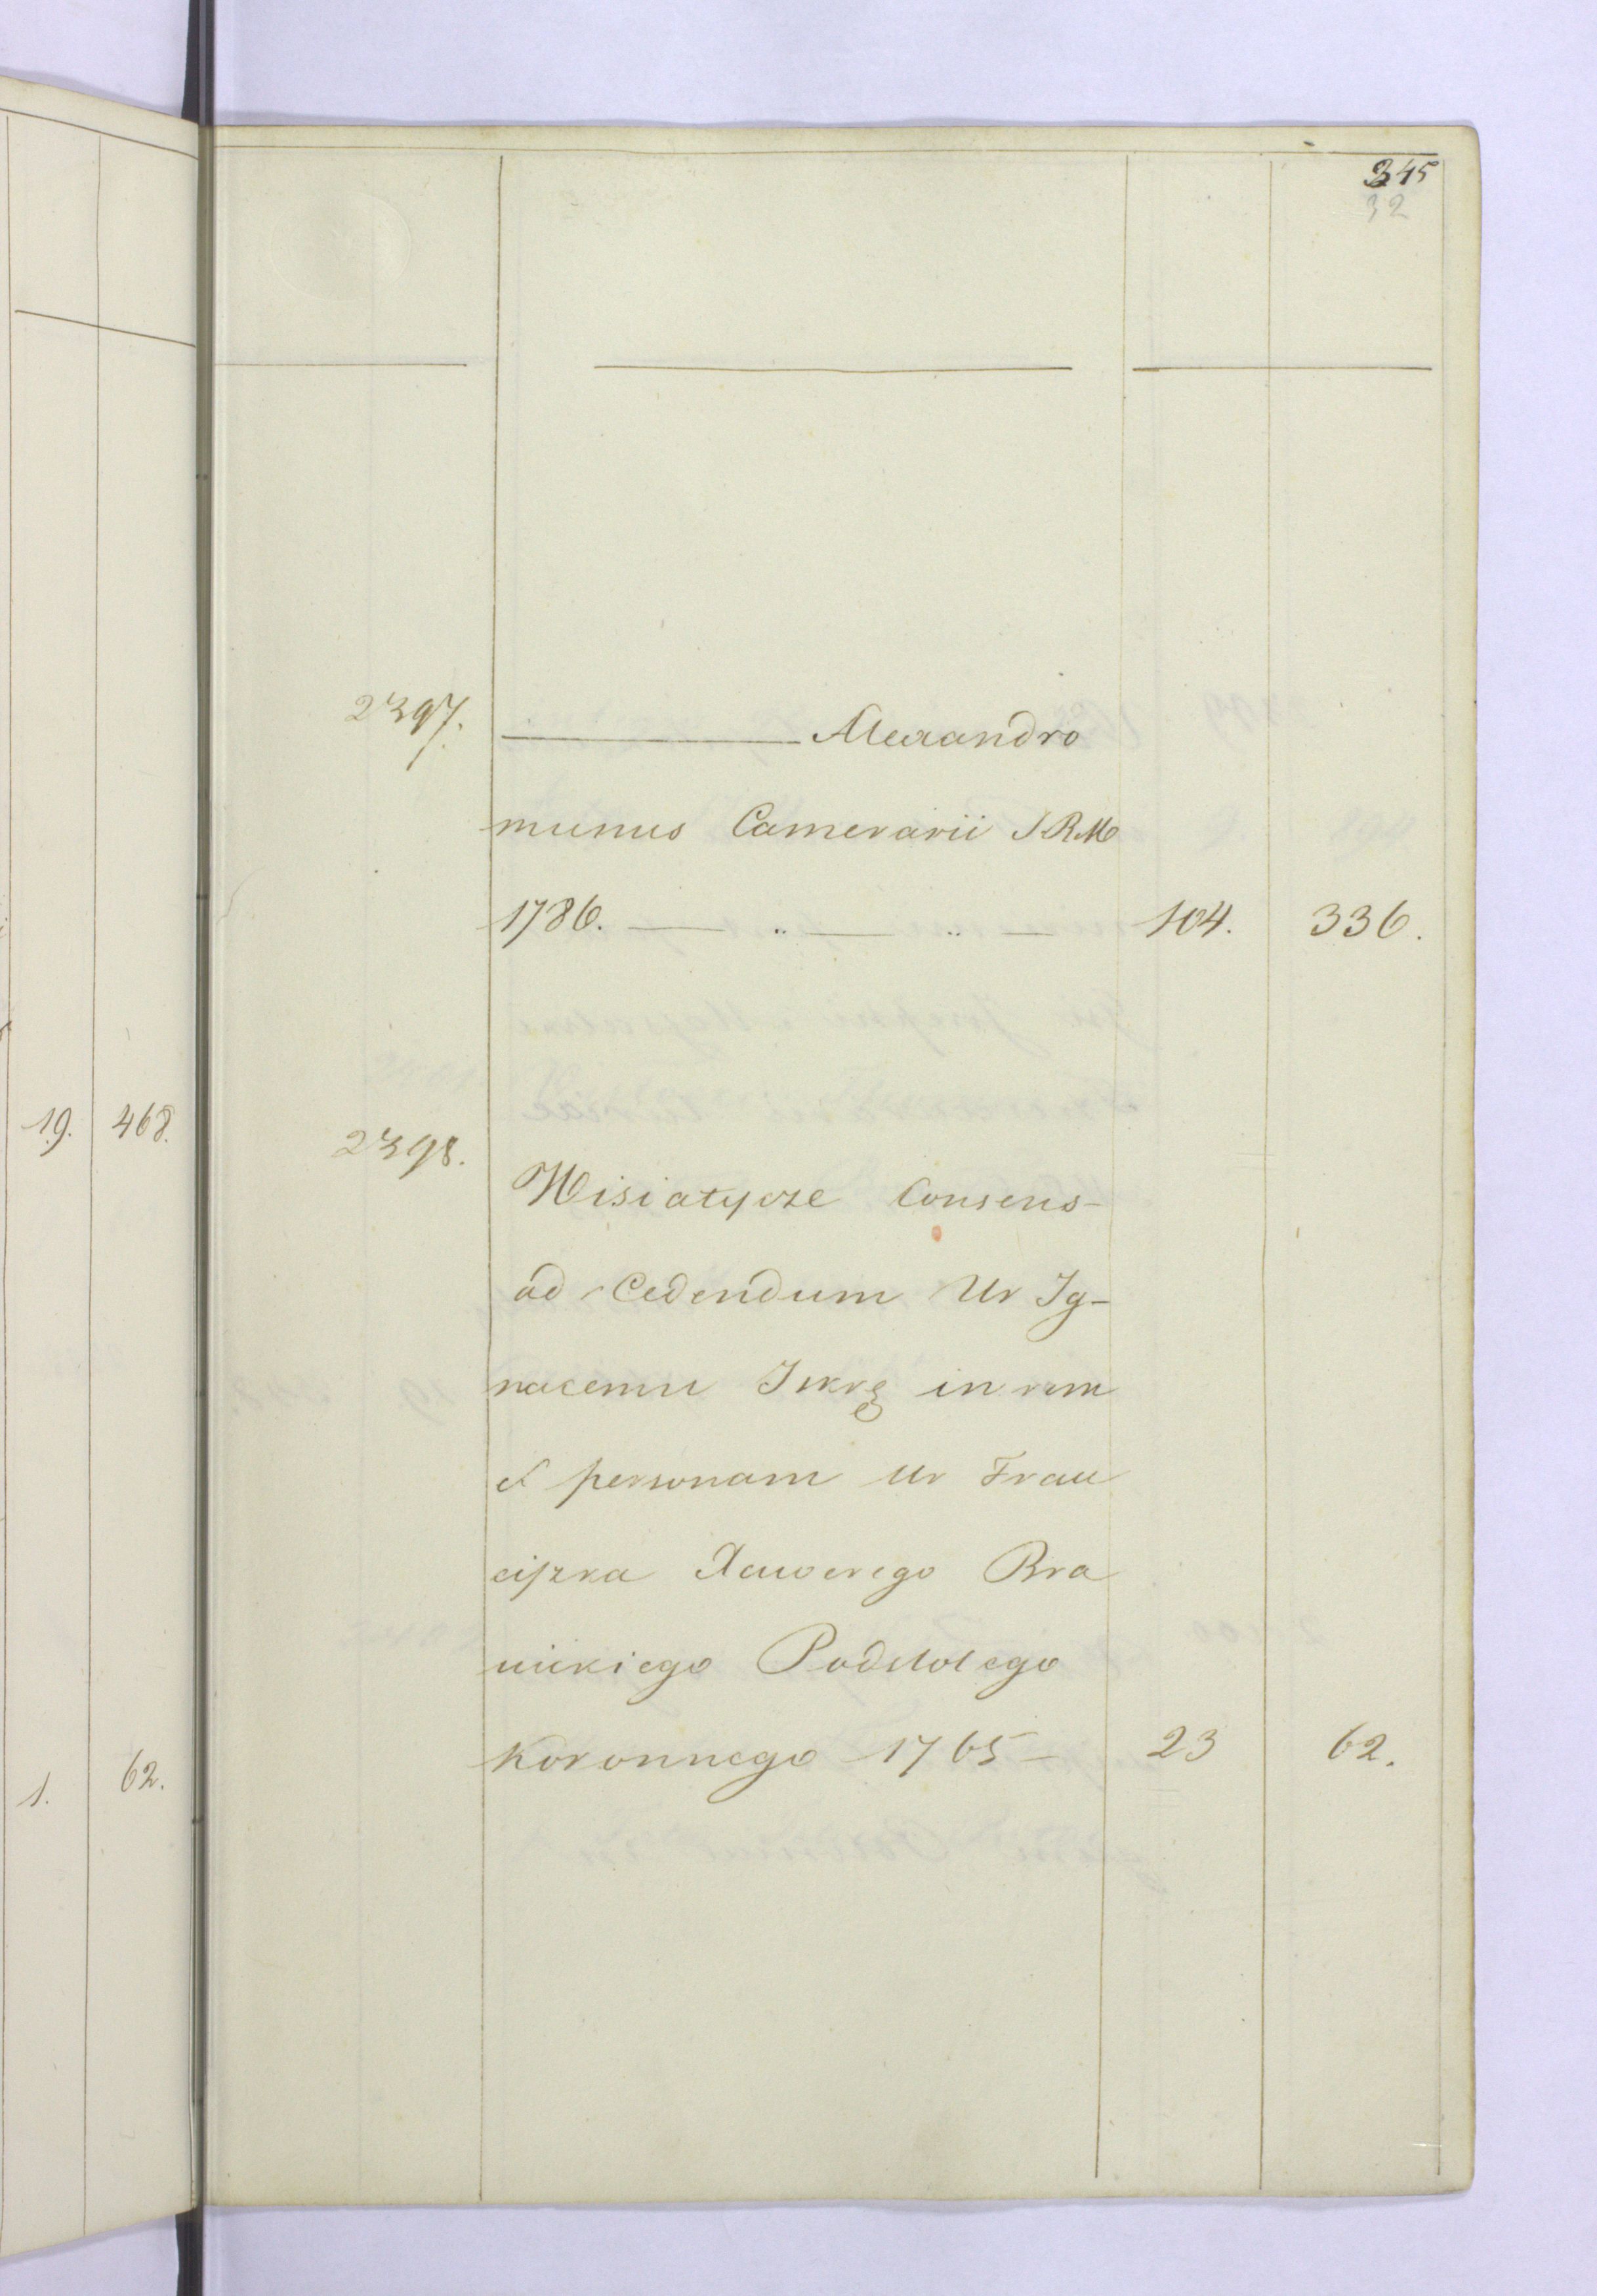 345
32
2397. ——— Alexandro
munus Camerarii SRM
1786. — „ — „ — 104. 336.
19. 468.
2398.
Wisiatycze Consens-
ad Cedendum Ur Ig-
nacemu Iskrę in rem
et personam Ur Fran
ciszka Xawerego Bra
nickiego Podstolego
Koronnego 1765 — 23 62.
1. 62.